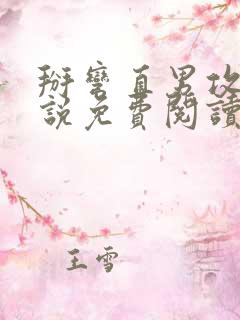 掰彎直男攻
說免費閱讀
王雪